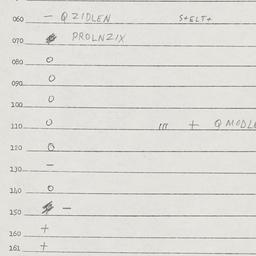 060 – QZIDLEN S+ELT+
070 PROLNZIX
080 O
090 O
100 O
110 O III + QMODLE
120 O
130 –
140 O
150 –
160 +
161 +